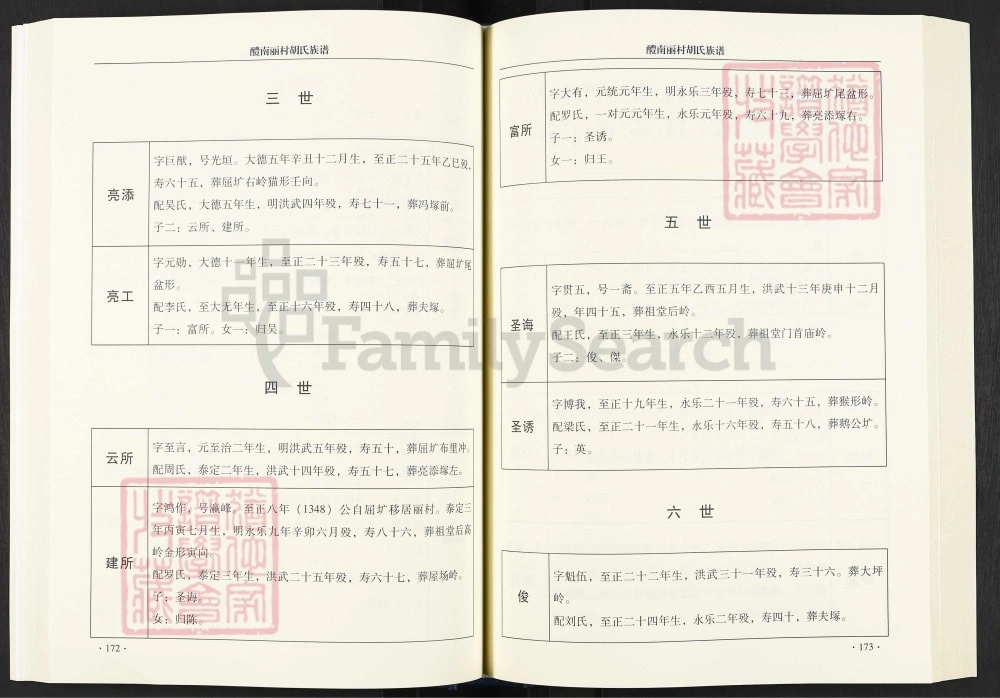 醴南丽村胡氏族谱
三 世
亮添
字巨猷，号光垣。大德五年辛丑十二月生，至正二十五年乙巳殁，
寿六十五，葬屈圹右岭猫形壬向。
配吴氏，大德五年生，明洪武四年殁，寿七十一，葬冯塚前。
子二：云所、建所。
亮工
字元勋，大德十一年生，至正二十三年殁，寿五十七，葬屈圹尾
盆形。
配李氏，至大无年生，至正十六年殁，寿四十八，葬夫塚。
子一：富所。女一：归吴。
四 世
云所
字至言，元至治二年生，明洪武五年殁，寿五十，葬屈圹布里冲。
配周氏，泰定二年生，洪武十四年殁，寿五十七，葬亮添塚左。
建所
字鸿作，号瀛峰，至正八年（1348）公自屈圹移居丽村。泰定三
年丙寅七月生，明永乐九年辛卯六月殁，寿八十六，葬祖堂后高
岭金形寅向。
配罗氏，泰定三年生，洪武二十五年殁，寿六十七，葬屋场岭。
子：圣海。
女：归陈。
·172·
醴南丽村胡氏族谱
富所
字大有，元统元年生，明永乐三年殁，寿七十三，葬屈圹尾盆形。
配罗氏，一对元元年生，永乐元年殁，寿六十九，葬亮添塚右。
子一：圣诱。
女一：归王。
五 世
圣海
字贯五，号一斋。至正五年乙酉五月生，洪武十三年庚申十二月
殁，年四十五，葬祖堂后岭。
配王氏，至正三年生，永乐十二年殁，葬祖堂门首庙岭。
子二：俊、傑。
圣诱
字博我，至正十九年生，永乐二十一年殁，寿六十五，葬猴形岭。
配梁氏，至正二十一年生，永乐十六年殁，寿五十八，葬鹅公圹。
子：英。
六 世
俊
字魁伍，至正二十二年生，洪武三十一年殁，寿三十六。葬大坪
岭。
配刘氏，至正二十四年生，永乐二年殁，寿四十，葬夫塚。
·173·
FamilySearch